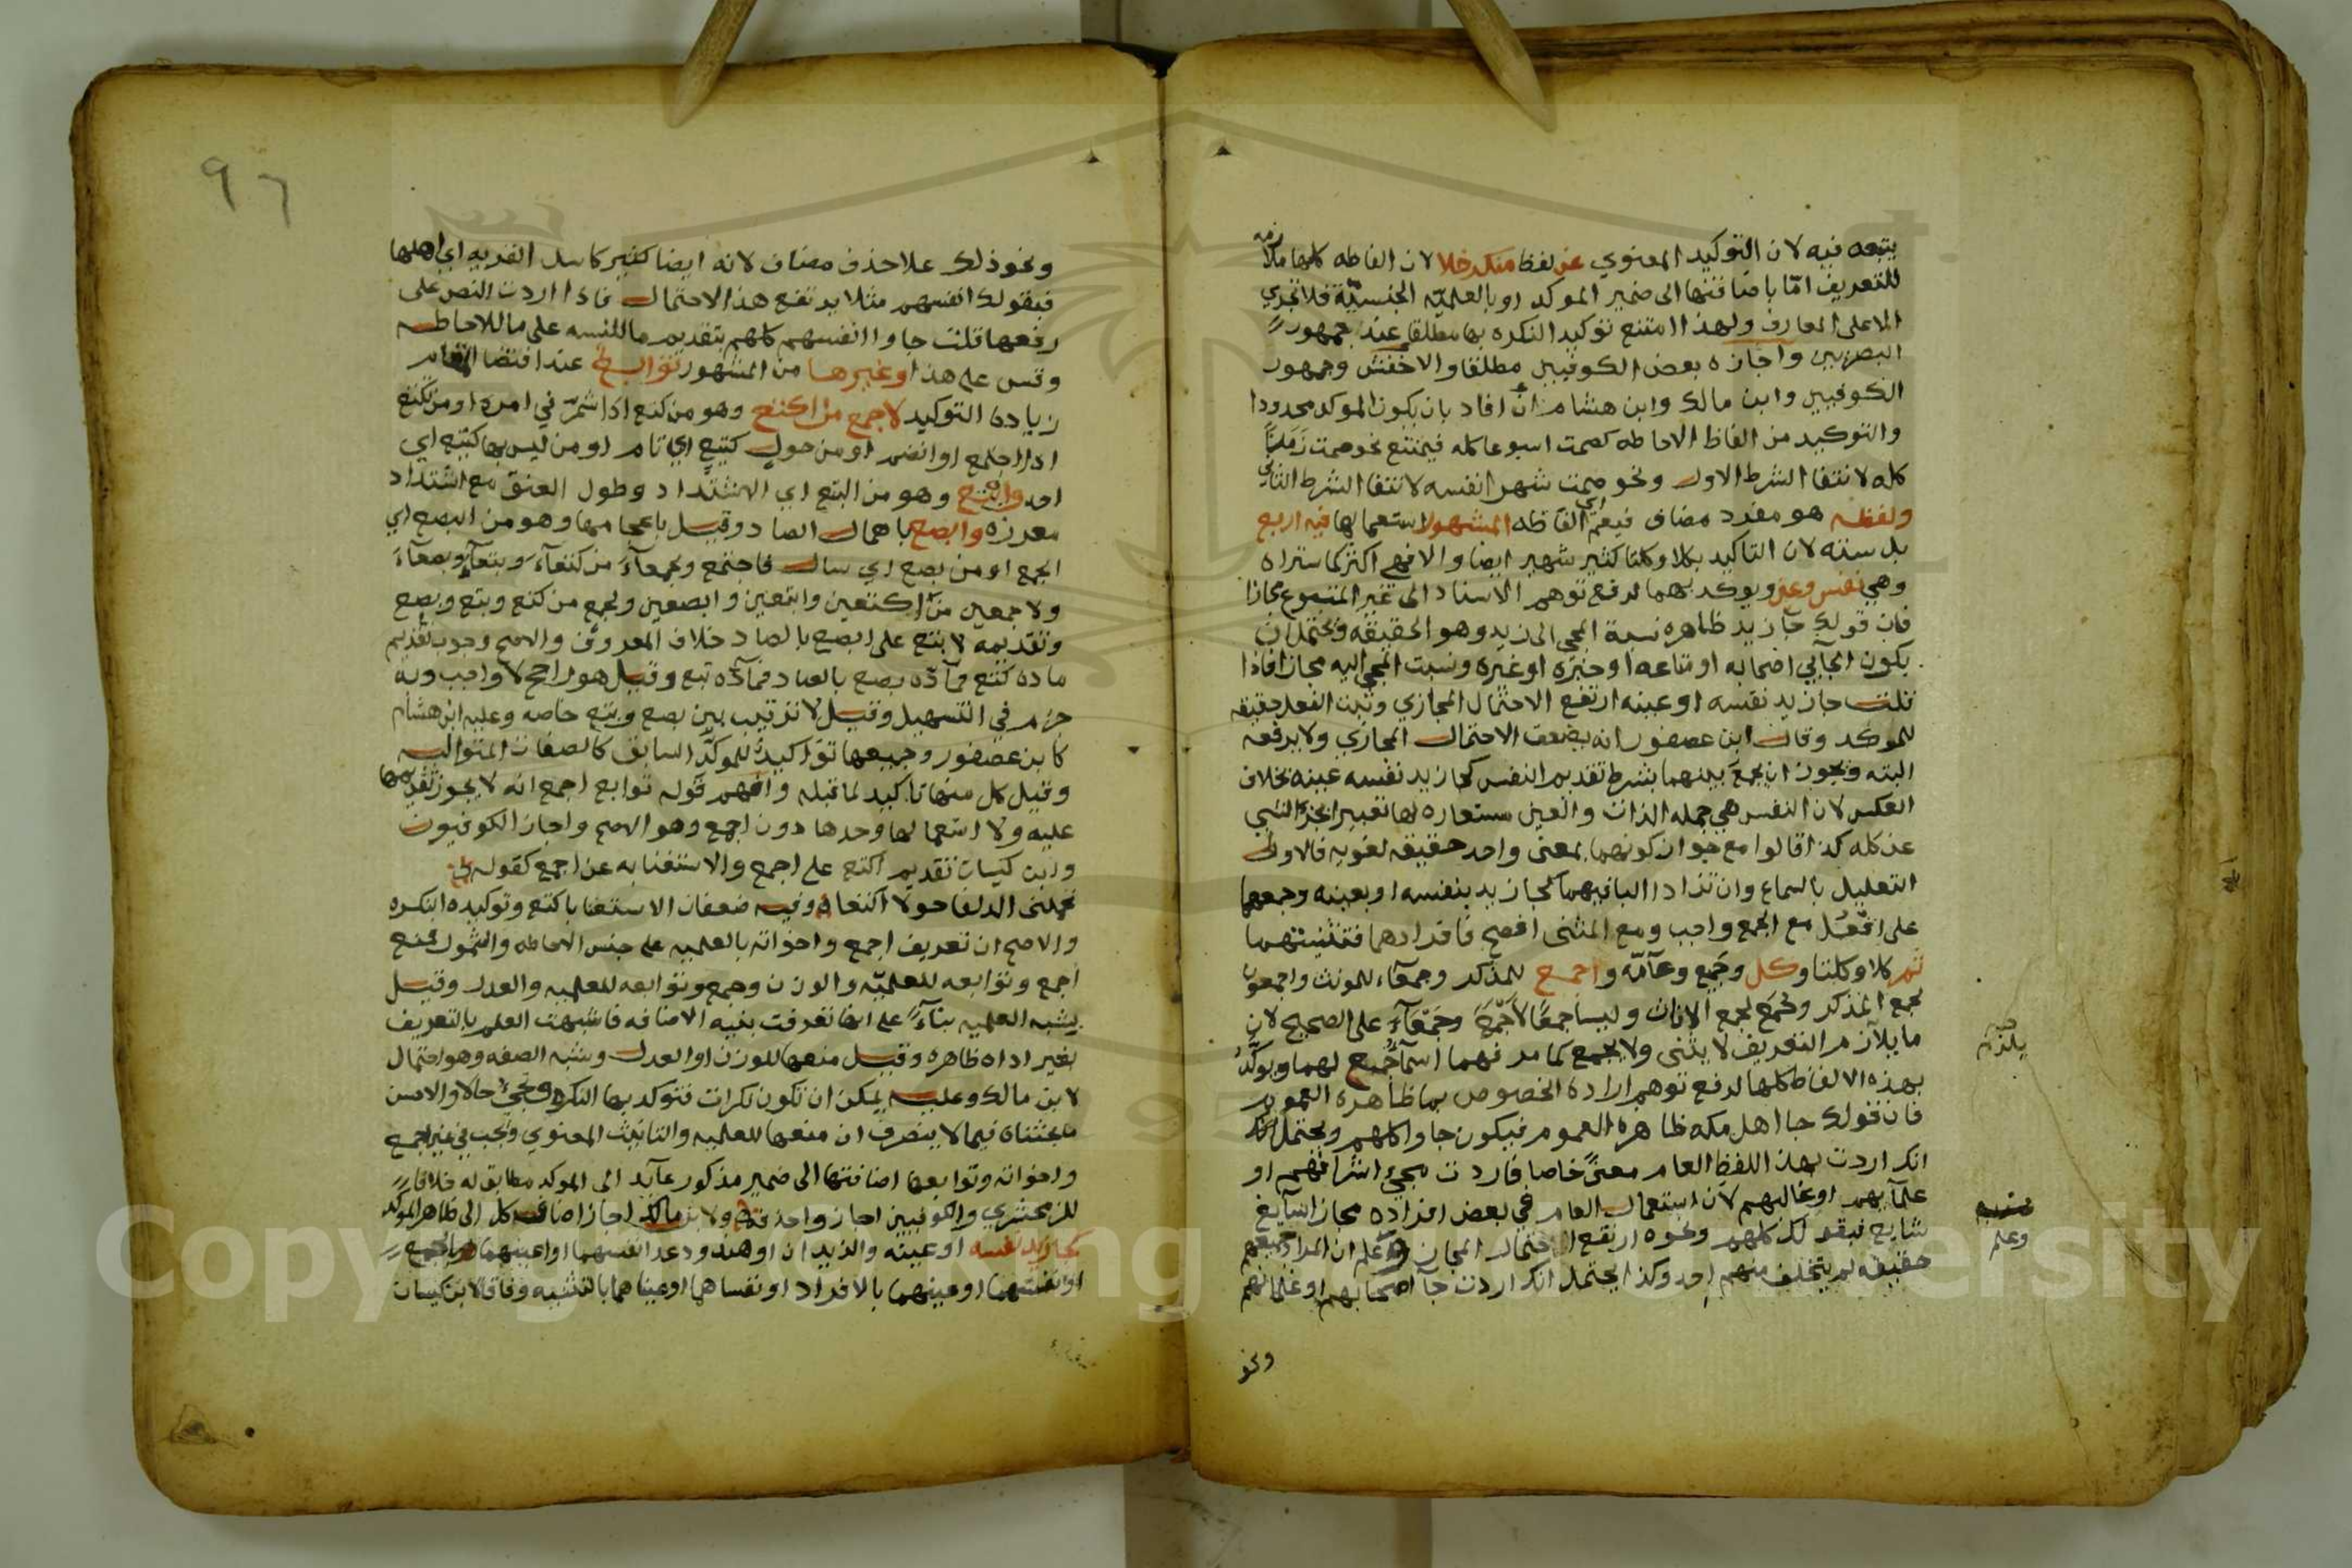 يتبعه فيه لان التوكيد المعنوي عن لفظ منكر خلا لان الفاظه كلها ملازمه
للتعريف امّا باضافتها الى ضمير الموكد او بالعلميّه الجنسيّة فلا تجري
الا على المعارف ولهذا امتنع توكيد النكره بها مطلقا عند جمهور
البصريين واجازه بعض الكوفيين مطلقا والاخفش وجمهور
الكوفيين وابن مالك وابن هشام ان افاد بان يكون الموكد محدودا
والتوكيد من الفاظ الاحاطه كصمت اسبوعا كله فيمتنع نحو صمت زمنًا
كله لانتفا الشرط الاول ونحو صمت شهرا نفسه لانتفا الشرط الثاني
ولفظه هو مفرد مضاف فيعم اي الفاظه المشهور استعمالها فيه اربع
بل سته لان التاكيد بكلا وكلتا كثير شهير ايضا والا فهي اكثر كما ستراه
وهي نفس وعين ويوكد بهما لدفع توهم الاسناد الى غير المتبوع مجازا
فان قولك جا زيد ظاهره نسبة المجي الى زيد وهو الحقيقه ويحتمل ان
يكون الجآيي اصحابه او متاعه او خبره او غيره ونسبت المجي اليه مجازا فاذا
قلت جا زيد نفسه او عينه ارتفع الاحتمال المجازي وثبت الفعل حقيقه
للموكد وقال ابن عصفور انه يضعف الاحتمال المجازي ولا يرفعه
البته ويجوز ان يجمع بينهما بشرط تقديم النفس كجا زيد نفسه عينه بخلاف
العكس لان النفس هي جمله الذات والعين مستعاره لها تعبيرا بجزء الشي
عن كله كذا قالوا مع جواز كونهما بمعنى واحد حقيقه لغويه فالاولى
التعليل بالسماع وان تزاد البا فيهما كجا زيد بنفسه او بعينه وجمعهما
على افعُل مع الجمع واجب ومع المثنى افصح فافرادهما فتثنيتهما
ثم كلا وكلتا وكل وجميع وعآمّه واجمع للمذكر وجمعآء للمونث واجمعون
لجمع المذكر وجُمَع لجمع الاناث وليسا جمعًا لأجْمَعَ وجَمْعآءَ على الصحيح لان
ما يلازم التعريف لا يثنى ولا يجمع كما مر فهما اسمآ جُمع لهما ويوكّدُ
بهذه الالفاظ كلها لدفع توهم ارادة الخصوص بما ظاهره العموم
فان قولك جا اهل مكه ظاهره العموم فيكون جاوا كلهم ويحتمل
انك اردت بهذا اللفظ العام معنًى خاصا فاردت مجيء اشرافهم او
علمآيهم او غالبهم لان استعمال العام في بعض افراده مجازا سآيغ
شايع فبقولك كلهم ونحوه ارتفع احتمال المجاز وعلم ان المراد جميعهم
حقيقه لم يتخلف منهم احد وكذا يحتمل انك اردت جآ اصحابهم او غلمانهم
ونحو
يلزم
وعلم
٩٦
ونحو ذلك علا حذف مضاف لانه ايضا كثير كاسل القريه اي اهلها
فبقولك انفسهم مثلا يرتفع هذا الاحتمال فاذا اردت النص على
رفعها قلت جاوا انفسهم كلهم بتقديم ما للنسبه على ما للاحاطه
وقس على هذا او غيرها من المشهور توابع عند اقتضا المقام
زيادة التوكيد لاجمع من اكتع وهو من كتع اذا شمّر في امره او من تكتع
اذا اجتمع او انضم او من حول كتيع اي تام او من ليس بها كتيع اي
احد وابتع وهو من البتع اي الاشتداد وطول العنق مع اشتداد
معرزه وابصع باهمال الصاد وقيل باعجامها وهو من البصع اي
الجمع او من بصع اي سال فاجتمع ولجمعآءَ من كتعآءَ وبتعآءَ وبصعآءَ
ولاجمعين من اكتعين وابتعين وابصعين ولجمع من كتع وبتع وبصع
وتقديمه لابتع على ابصع بالصاد خلاف المعروف والاصح وجوب تقديم
ماده كتع فمآدّه بصع بالصاد فمآدّه تبع وقيل هو راجح لا واجب وبه
جزم في التسهيل وقيل لا ترتيب بين بصع وبتع خاصه وعليه ابن هشام
كابن عصفور وجميعها تواكيدُ للموكد السابق كالصفات المتواليه
وقيل كل منها تاكيد لما قبله وافهم قوله توابع اجمع انه لا يجوز تقديمها
عليه ولا استعمالها وحدها دون اجمع وهو الاصح واجاز الكوفيون
وابن كيسان تقديم اكتع على اجمع والاستغنا به عن اجمع كقوله
تحملني الدلفا حولا اكتعا وفيه ضعفان الاستغنا باكتع وتوكيده النكره
والاصح ان تعريف اجمع واخواته بالعلميه على جنس الاحاطه والشمول فمنع
اجمع وتوابعه للعلميّه والوزن وجمع وتوابعه للعلميه والعدل وقيل
بشبه العلميه بنآءً على انها تعرفت بنيه الاضافه فاشبهت العلم بالتعريف
بغير اداه ظاهره وقيل منعها للوزن او العدل وشبه الصفه وهو احتمال
لابن مالك وعليه يمكن ان تكون نكرات فتوكد بها النكره وتجيء حالا والاحسن
ما بحثناه فيما لا ينصرف ان منعها للعلميه والتانيث المعنوي ويجب في غير اجمع
واخواته وتوابعها اضافتها الى ضمير مذكور عآيد الى الموكد مطابق له خلافا
للزمخشري والكوفيين اجاز واحذفه ولابن مالك اجاز اضافه كل الى ظاهر الموكد
كجا زيد نفسه او عينه والزيدان او هند ودعد انفسهما او اعينهما بالجمع
او نفسهما او عينهما بالافراد او نفساهما او عيناهما بالتثنيه وفاقا لابن كيسان
Copyright © King Saud University